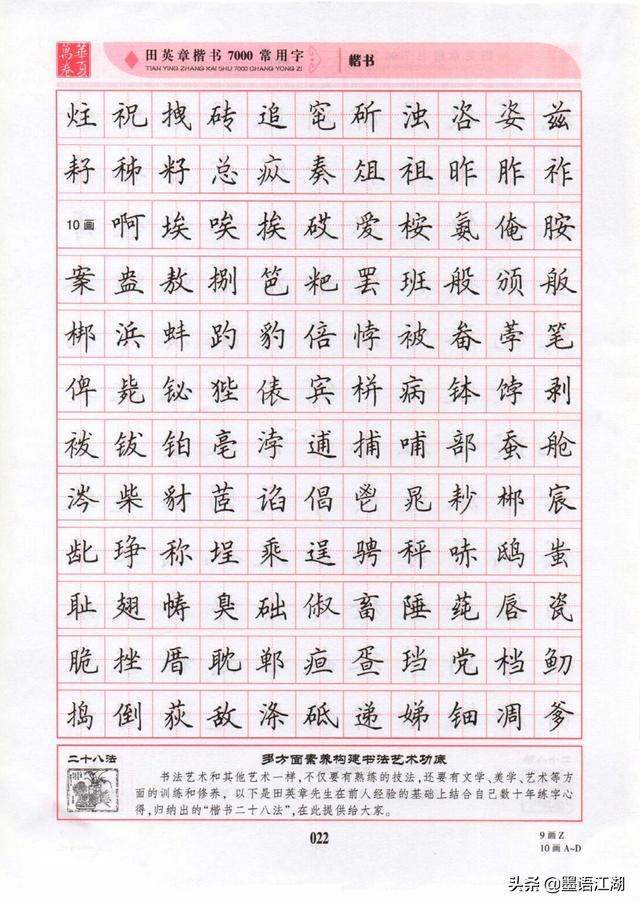 華夏萬卷
田英章楷书7000常用字
TIAN YING ZHANG KAI SHU 7000 CHANG YONG ZI
楷书
炷 祝 拽 砖 追 窀 斫 浊 咨 姿 兹
耔 秭 籽 总 疭 奏 俎 祖 昨 胙 祚
10画 啊 埃 唉 挨 砹 爱 桉 氨 俺 胺
案 盎 敖 捌 笆 粑 罢 班 般 颁 舨
梆 浜 蚌 趵 豹 倍 悖 被 畚 荸 笔
俾 毙 铋 狴 俵 宾 栟 病 钵 饽 剥
袯 钹 铂 亳 浡 逋 捕 哺 部 蚕 舱
涔 柴 豺 茝 谄 倡 鬯 晁 耖 郴 宸
龀 琤 称 埕 乘 逞 骋 秤 哧 鸱 蚩
耻 翅 帱 臭 础 俶 畜 陲 莼 唇 瓷
脆 挫 厝 耽 郸 疸 疍 珰 党 档 鱽
捣 倒 荻 敌 涤 砥 递 娣 钿 凋 爹
二十八法
多方面素养构建书法艺术功底
书法艺术和其他艺术一样，不仅要有熟练的技法，还要有文学、美学、艺术等方
面的训练和修养，以下是田英章先生在前人经验的基础上结合自己数十年练字心
得，归纳出的“楷书二十八法”，在此提供给大家。
022
9画Z
10画A~D
头条@墨语江湖